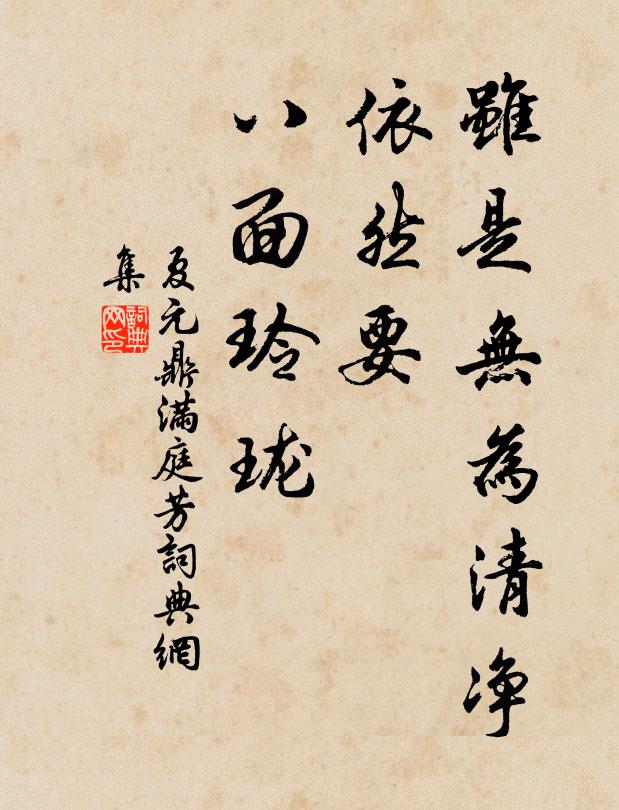 雖是無為清净
依然要
八面玲珑
夏元鼎滿庭芳詞典網
集
詞典
网印